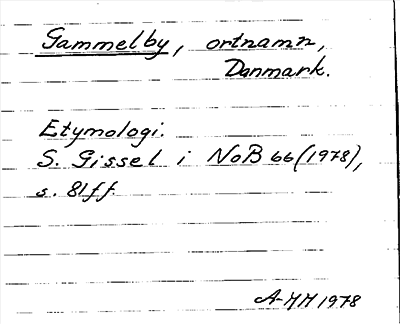 Gammelby, ortnamn,
Danmark.
Etymologi.
S. Gissel i NoB 66 (1978),
s. 81ff.
A-MM 1978